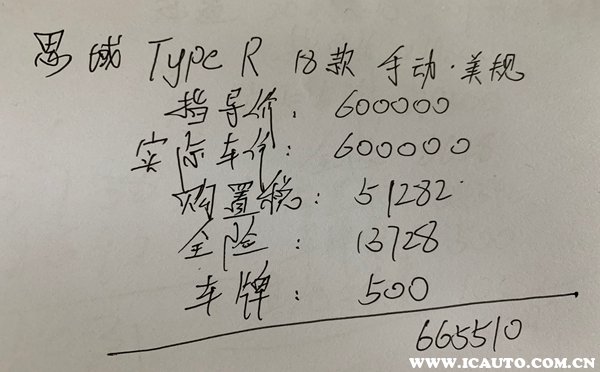 思域 Type R 18款 手动·美规
指导价: 600000
实际车价: 600000
购置税: 51282
全险: 13728
车牌: 500
665510
WWW.ICAUTO.COM.CN